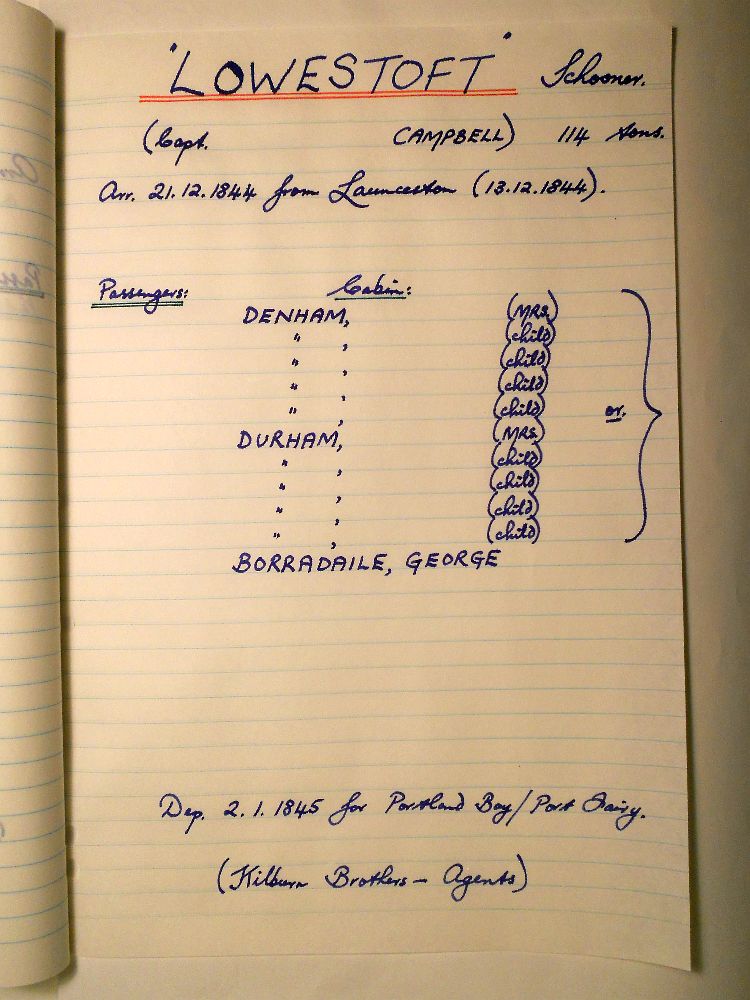 "LOWESTOFT" Schooner.
(Capt. CAMPBELL) 114 tons.
Arr. 21.12.1844 from Launceston (13.12.1844).
Passengers: Cabin:
DENHAM, (MRS)
" , (child)
" , (child)
" , (child)
" , (child) or.
DURHAM, (MRS)
" , (child)
" , (child)
" , (child)
" , (child)
BORRADAILE, GEORGE
Dep. 2.1.1845 for Portland Bay/Port Fairy.
(Kilburn Brothers - Agents)